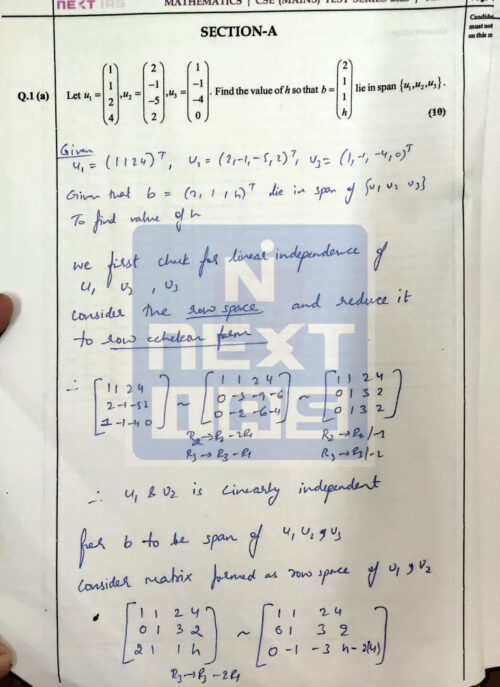 NEXT IAS
MATHEMATICS | CSE (MAINS) TEST SERIES
Candid
must not
on this
SECTION-A
Q.1 (a) Let u₁ = (1 1 2 4), u₂ = (2 -1 -5 2), u₃ = (1 -1 -4 0). Find the value of h so that b = (2 1 1 h) lie in span {u₁,u₂,u₃}.
(10)
Given
u₁ = (1 1 2 4)ᵀ, u₂ = (2,-1,-5,2)ᵀ, u₃ = (1,-1,-4,0)ᵀ
Given that b = (2, 1 1 h)ᵀ lie in span of {u₁ u₂ u₃}
To find value of h
we first check for linear independence of
u₁ u₂ , u₃
consider the row space and reduce it
to row echelon form
NEXT
IAS
∴ [1 1 2 4; 2 -1 -5 2; 1 -1 -4 0] ~ [1 1 2 4; 0 -3 -9 -6; 0 -2 -6 -4] ~ [1 1 2 4; 0 1 3 2; 0 1 3 2]
R₂→R₂-2R₁ R₂→R₂/-3
R₃→R₃-R₁ R₃→R₃/-2
∴ u₁ & u₂ is linearly independent
for b to be span of u₁ u₂ , u₃
consider matrix formed as row space of u₁ , u₂
[1 1 2 4; 0 1 3 2; 2 1 1 h] ~ [1 1 2 4; 0 1 3 2; 0 -1 -3 h-2(4)]
R₃→R₃-2R₁